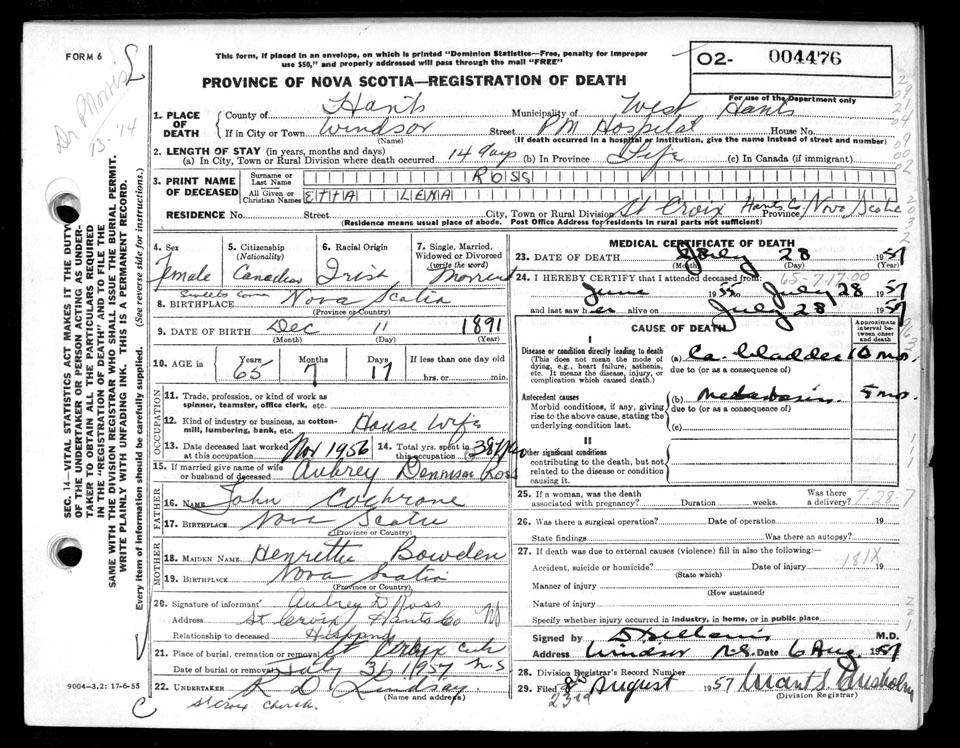 FORM 6
This form, if placed in an envelope, on which is printed "Dominion Statistics—Free, penalty for improper
use $50," and properly addressed will pass through the mail "FREE"
PROVINCE OF NOVA SCOTIA—REGISTRATION OF DEATH
02- 004476
For use of the Department only
Dr Morris
13.'14
1. PLACE OF DEATH
County of Hants Municipality of West Hants
If in City or Town Windsor Street P M Hospital House No.
(Name) (If death occurred in a hospital or institution, give the name instead of street and number)
2. LENGTH OF STAY (in years, months and days)
(a) In City, Town or Rural Division where death occurred 14 days (b) In Province Life (c) In Canada (if immigrant)
3. PRINT NAME OF DECEASED
Surname or Last Name ROSS
All Given or Christian Names ETTA LENA
RESIDENCE No. Street City, Town or Rural Division St Croix Hants Co Province Nova Scotia
(Residence means usual place of abode. Post Office Address for residents in rural parts not sufficient)
4. Sex Female
5. Citizenship (Nationality) Canadian
6. Racial Origin Irish
7. Single, Married, Widowed or Divorced (write the word)
8. BIRTHPLACE Nova Scotia
(Province or Country)
9. DATE OF BIRTH Dec 11 1891
(Month) (Day) (Year)
10. AGE in Years 65 Months 7 Days 17 If less than one day old hrs. or min.
OCCUPATION
11. Trade, profession, or kind of work as spinner, teamster, office clerk, etc.
12. Kind of industry or business, as cotton-mill, lumbering, bank, etc. House Wife
13. Date deceased last worked at this occupation Nov 1956
14. Total yrs. spent in this occupation 38
15. If married give name of wife or husband of deceased Aubrey Dennison Ross
FATHER
16. NAME John Cochrane
17. BIRTHPLACE Nova Scotia
(Province or Country)
MOTHER
18. MAIDEN NAME Henrietta Bowden
19. BIRTHPLACE Nova Scotia
(Province or Country)
20. Signature of informant Aubrey D Ross
Address St Croix Hants Co NS
Relationship to deceased Husband
21. Place of burial, cremation or removal St Croix N S
Date of burial or removal July 31 1957
22. UNDERTAKER R D Lindsay
(Name and address)
St Croix Church.
9004-3.2: 17-6-55
SEC. 14—VITAL STATISTICS ACT MAKES IT THE DUTY
OF THE UNDERTAKER OR PERSON ACTING AS UNDER-
TAKER TO OBTAIN ALL THE PARTICULARS REQUIRED
IN THE "REGISTRATION OF DEATH" AND TO FILE THE
SAME WITH THE DIVISION REGISTRAR WHO SHALL ISSUE THE BURIAL PERMIT.
WRITE PLAINLY WITH UNFADING INK. THIS IS A PERMANENT RECORD.
Every item of information should be carefully supplied. (See reverse side for instructions.)
MEDICAL CERTIFICATE OF DEATH
23. DATE OF DEATH July 28 1957
(Month) (Day) (Year)
24. I HEREBY CERTIFY that I attended deceased from: 65-7-17:00
June 1955 July 28 1957
and last saw her alive on July 28 1957
CAUSE OF DEATH
Approximate interval between onset and death
I
Disease or condition directly leading to death
(This does not mean the mode of dying, e.g., heart failure, asthenia, etc. It means the disease, injury, or complication which caused death.)
(a) Ca. bladder 10 mo.
due to (or as a consequence of)
Antecedent causes
Morbid conditions, if any, giving rise to the above cause, stating the underlying condition last.
(b) 5 mo.
due to (or as a consequence of)
(c)
II
Other significant conditions
contributing to the death, but not related to the disease or condition causing it.
25. If a woman, was the death associated with pregnancy? Duration weeks. Was there a delivery? 7-28:7
26. Was there a surgical operation? Date of operation 19
State findings Was there an autopsy?
27. If death was due to external causes (violence) fill in also the following:—
Accident, suicide or homicide? Date of injury 181X 19
(State which)
Manner of injury
(How sustained)
Nature of injury
Specify whether injury occurred in industry, in home, or in public place
Signed by M.D.
Address Windsor N.S. Date 6 Aug. 1957
28. Division Registrar's Record Number
29. Filed August 1957
23rd (Division Registrar)